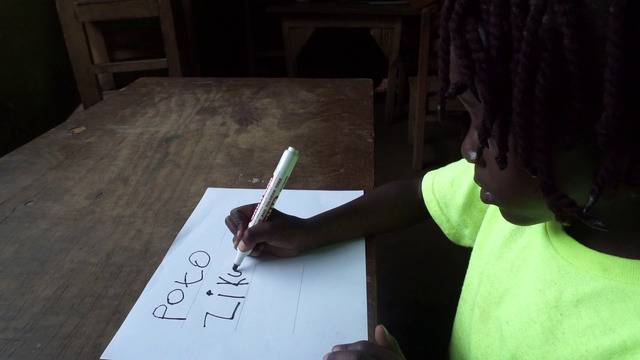 Poto
Ziku